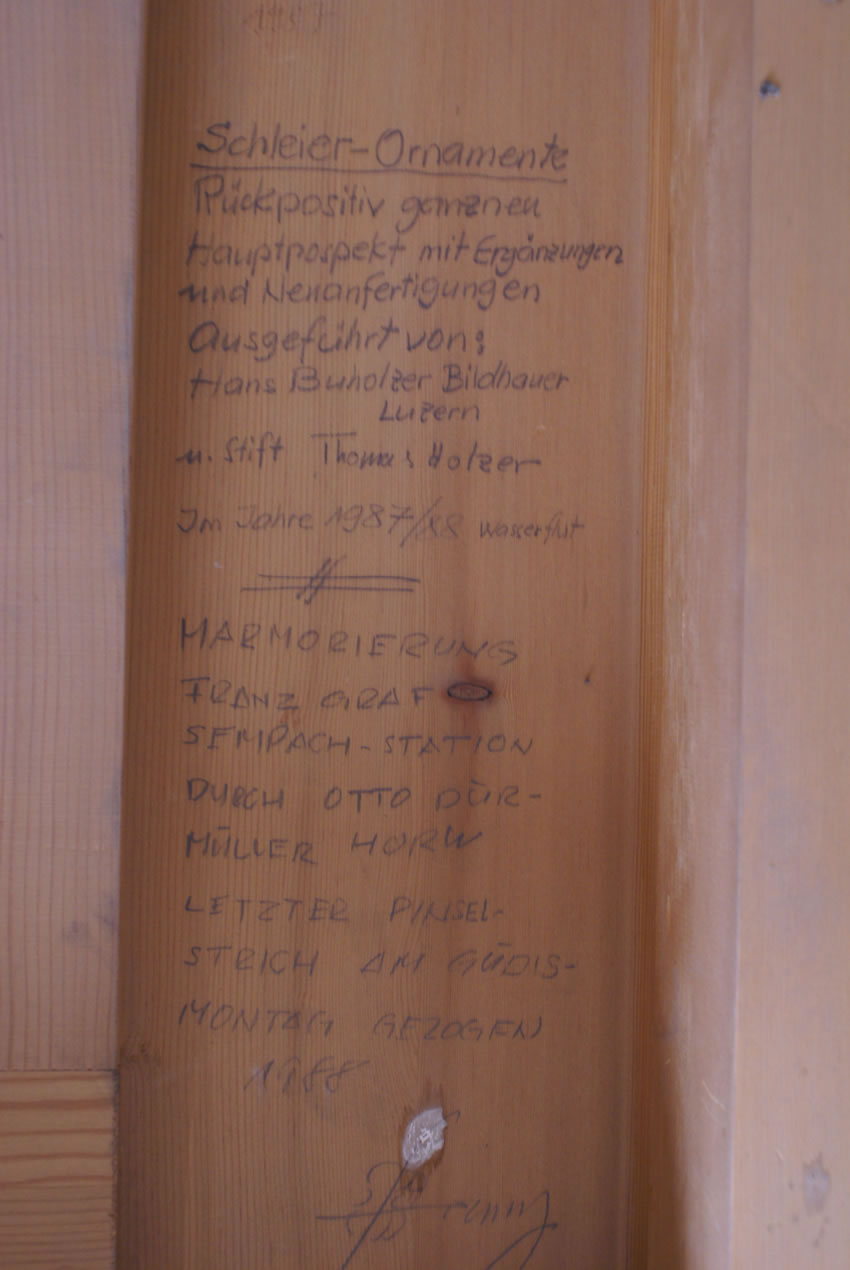 Schleier-Ornamente
Rückpositiv ganzneu
Hauptpospekt mit Ergänzungen
und Neuanfertigungen
Ausgeführt von:
Hans Buholzer Bildhauer
Luzern
u. Stift Thomas Holzer
Im Jahre 1987/88 wasserflut
MARMORIERUNG
FRANZ GRAF
SEMPACH-STATION
DURCH OTTO DÜR-
MÜLLER HORW
LETZTER PINSEL-
STRICH AM GÜDIS-
MONTAG GEZOGEN
1988